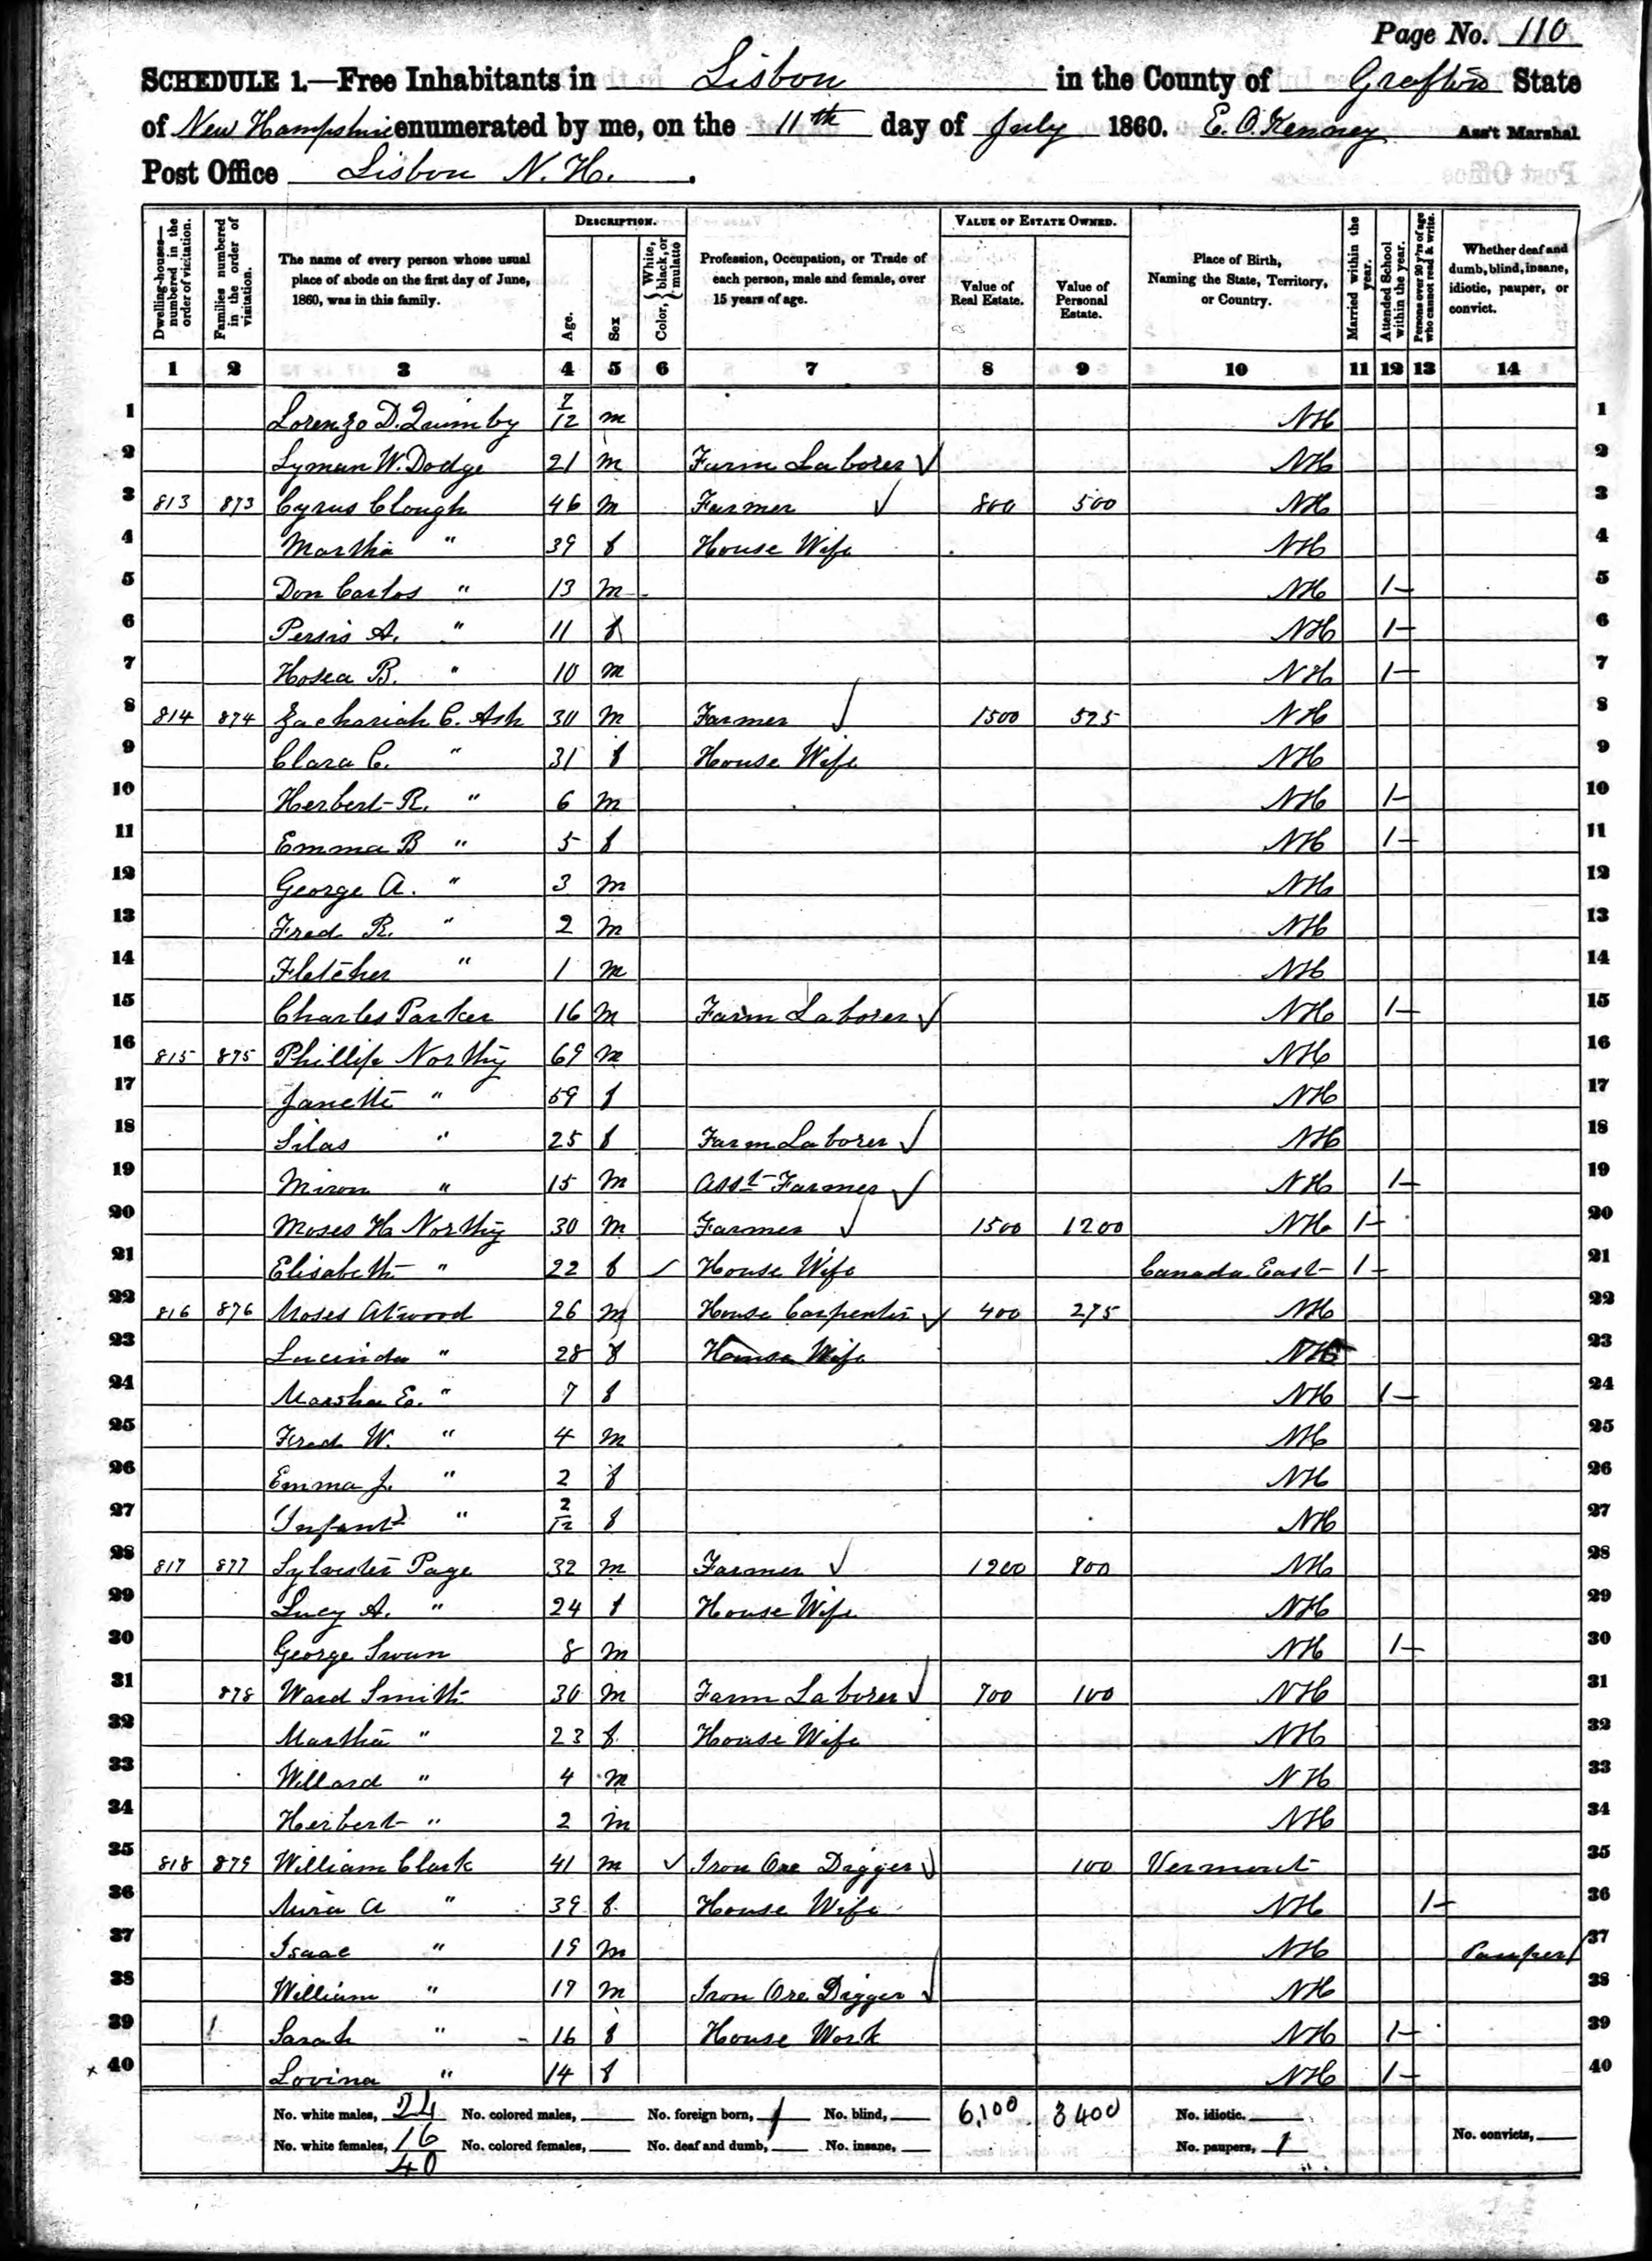 Page No. 110
SCHEDULE 1.—Free Inhabitants in Lisbon in the County of Grafton State
of New Hampshire enumerated by me, on the 11th day of July 1860. E. O. Kenney Ass't Marshal
Post Office Lisbon N. H.
DESCRIPTION. VALUE OF ESTATE OWNED.
Dwelling-houses—numbered in the order of visitation. Families numbered in the order of visitation. The name of every person whose usual place of abode on the first day of June, 1860, was in this family. Age. Sex Color, { White, black, or mulatto Profession, Occupation, or Trade of each person, male and female, over 15 years of age. Value of Real Estate. Value of Personal Estate. Place of Birth, Naming the State, Territory, or Country. Married within the year. Attended School within the year. Persons over 20 y'rs of age who cannot read & write. Whether deaf and dumb, blind, insane, idiotic, pauper, or convict.
1 2 3 4 5 6 7 8 9 10 11 12 13 14
1 Lorenzo D. Quimby 7/12 m NH 1
2 Lyman W. Dodge 21 m Farm Laborer ✓ NH 2
3 813 873 Cyrus Clough 46 m Farmer ✓ 800 500 NH 3
4 Martha " 39 f House Wife NH 4
5 Don Carlos " 13 m NH 1 5
6 Persis A. " 11 f NH 1 6
7 Hosea B. " 10 m NH 1 7
8 814 874 Zachariah C. Ash 30 m Farmer ✓ 1500 525 NH 8
9 Clara C. " 31 f House Wife NH 9
10 Herbert R. " 6 m NH 1 10
11 Emma B " 5 f NH 1 11
12 George A. " 3 m NH 12
13 Fred R. " 2 m NH 13
14 Fletcher " 1 m NH 14
15 Charles Parker 16 m Farm Laborer ✓ NH 1 15
16 815 875 Phillip Northy 69 m NH 16
17 Janette " 59 f NH 17
18 Silas " 25 f Farm Laborer ✓ NH 18
19 Miron " 15 m Asst Farmer ✓ NH 1 19
20 Moses H. Northy 30 m Farmer ✓ 1500 1200 NH 1 20
21 Elisabeth " 22 f ✓ House Wife Canada East 1 21
22 816 876 Moses Atwood 26 m House Carpenter ✓ 400 275 NH 22
23 Lucinda " 28 f House Wife NH 23
24 Marsha E. " 7 f NH 1 24
25 Fred W. " 4 m NH 25
26 Emma J. " 2 f NH 26
27 (Infant) " 2/12 f NH 27
28 817 877 Sylvester Page 32 m Farmer ✓ 1200 800 NH 28
29 Lucy A. " 24 f House Wife NH 29
30 George Swan 8 m NH 1 30
31 878 Ward Smith 30 m Farm Laborer ✓ 700 100 NH 31
32 Martha " 23 f House Wife NH 32
33 Willard " 4 m NH 33
34 Herbert " 2 m NH 34
35 818 879 William Clark 41 m ✓ Iron Ore Digger ✓ 100 Vermont 35
36 A " 39 f House Wife NH 1 36
37 Isaac " 19 m NH Pauper 37
38 William " 17 m Iron Ore Digger ✓ NH 38
39 Sarah " 16 f House Work NH 1 39
x 40 Lovina " 14 f NH 1 40
No. white males, 24 No. colored males, No. foreign born, 1 No. blind, 6,100 3400 No. idiotic.
No. white females, 16 No. colored females, No. deaf and dumb, No. insane, No. paupers, 1 No. convicts,
40